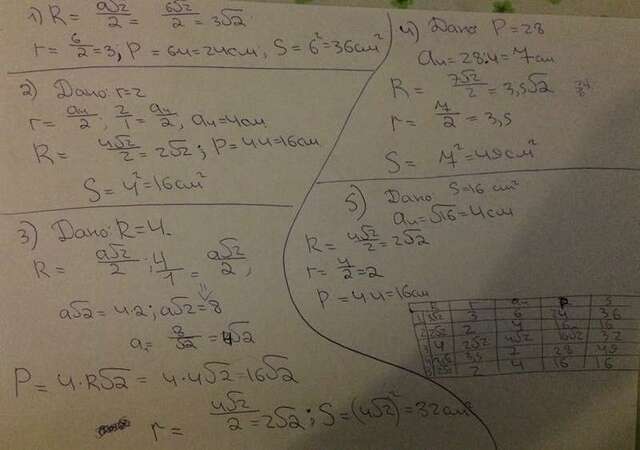 1) R = a√2/2 = 6√2/2 = 3√2
r = 6/2 = 3; P = 6·4 = 24см, S = 6² = 36см²
2) Дано: r=2
r = a₄/2, 2/1 = a₄/2, a₄ = 4см
R = 4√2/2 = 2√2; P = 4·4 = 16см
S = 4² = 16см²
3) Дано: R = 4.
R = a√2/2; 4/1 = a√2/2,
a√2 = 4·2; a√2 = 8
a = 8/√2 = 4√2
P = 4·R√2 = 4·4√2 = 16√2
r = 4√2/2 = 2√2; S = (4√2)² = 32см²
4) Дано P = 28
a₄ = 28:4 = 7см
R = 7√2/2 = 3,5√2
r = 7/2 = 3,5
S = 7² = 49см²
5) Дано: S=16 см²
a₄ = √16 = 4см
R = 4√2/2 = 2√2
r = 4/2 = 2
P = 4·4 = 16см
R r a₄ P S
1 3√2 3 6 24 36
2 2√2 2 4 16 16
3 4 2√2 4√2 16√2 32
3,5√2 3,5 7 28 49
2√2 2 4 16 16